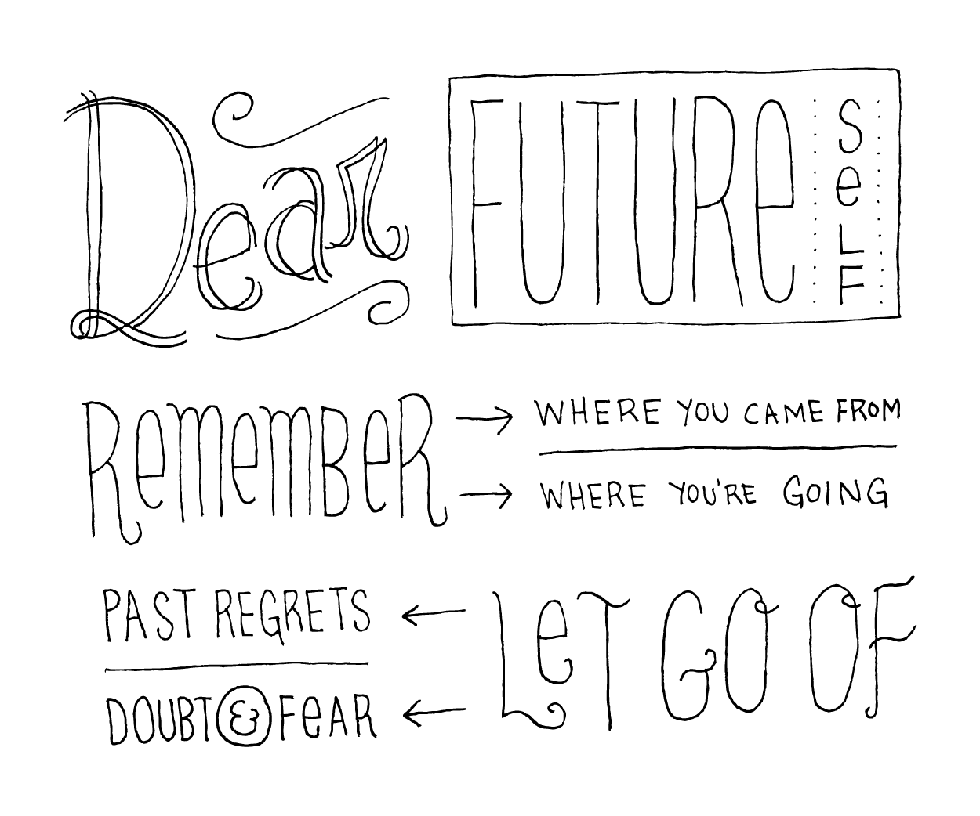 Dear FUTURe SeLF
ReMeMBeR → WHERE YOU CAME FROM
→ WHERE YOU'RE GOING
LeT GO OF
PAST REGRETS ←
DOUBT & FeAR ←